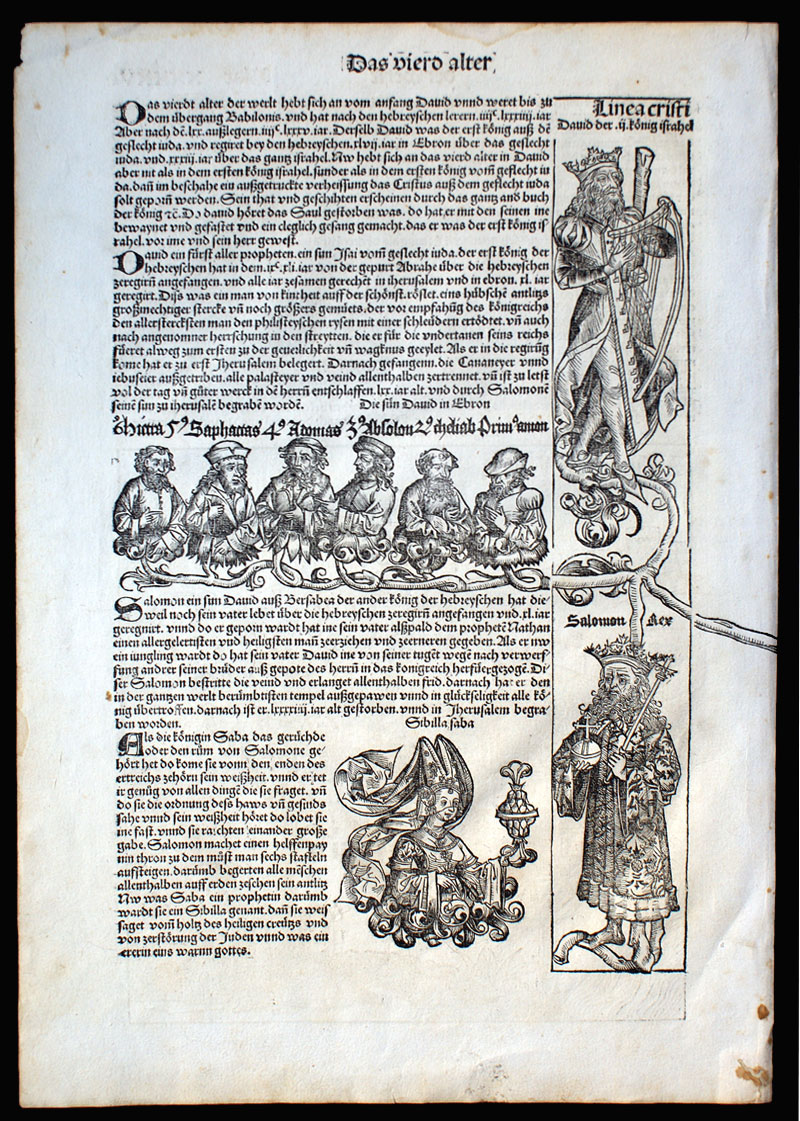 Das vierd alter
Linea cristi
David der .ij. könig israhel
Das vierdt alter der werlt hebt sich an vom anfang David vnnd weret bis zu
dem übergang Babilonis. vnd hat nach den hebreyschen lerern .iiijc. lxxxiiij. iar
Aber nach dē .lxx. außlegern .iiijc. lxxxv. iar. Derselb David was der erst könig auß dē
geslecht iuda. vnd regiret bey den hebreyschen .xlvij. iar in Ebron über das geslecht
iuda. vnd .xxxiij. iar über das gantz israhel. Nw hebt sich an das vierd alter in David
aber nit als in dem ersten könig israhel. sunder als in dem ersten könig vom̄ geslecht iu
da. dañ im beschahe ein außgetruckte verheissung das Cristus auß dem geslecht iuda
solt geporn̄ werden. Sein that vnd geschihten erscheinen durch das gantz and̄ buch
der könig ⁊c̄. Do david höret das Saul gestorben was. do hat er mit den seinen ine
bewaynet vnd gefastet vnd ein cleglich gesang gemacht. das er was der erst könig is
rahel. vor ime vnd sein herr gewest.
David ein fürst aller propheten. ein sun Isai vom̄ geslecht iuda. der erst könig der
hebreyschen hat in dem .ixc. xli. iar von der gepurt Abrahe über die hebreyschen
zeregirn̄ angefangen. vnd alle iar zesamen gerechēt in iherusalem vnd in ebron. xl. iar
geregirt. Diß was ein man von kintheit auff der schönst. röslet. eins hübschē antlitzs
großmechtiger stercke vñ noch größers gemuets. der vor empfahūg des königreichs
den allerstercksten man den philisteyschen rysen mit einer schleudern ertödtet. vñ auch
nach angenomner herrschung in den streytten. die er für die vndertanen seins reichs
füeret alweg zum ersten zu der geuerlichkeit vñ wagknus geeylet. Als er in die regirūg
kome hat er zu erst Jherusalem belegert. Darnach gefangenn̄. die Cananeyer vnnd
iebuseier außgetriben. alle palasteyer vnd veind allenthalben zertrennet. vñ ist zu letst
vol der tag vñ güter werck in dē herrn̄ entschlaffen. lxx. iar alt. vnd durch Salomone
seinē sun zu iherusalē begrabē wordē. Die sün David in Ebron
6us Hietra 5us Saphacias 4us Adomas 3us Absolon 2us cheliab Primus amon
Salomon ein sun David auß Bersabea der ander könig der hebreyschen hat die-
weil noch sein vater lebet über die hebreyschen zeregirn̄ angefangen vnd .xl. iar
geregnirt. vnnd do er geporn wardt hat ine sein vater alßpald dem prophetē Nathan
einen allergelertisten vnd heiligsten mañ zeerziehen vnd zeerneren gegeben. Als er nw
ein iungling wardt do hat sein vater David ine von seiner tugēt wegē nach verwerf
fung andrer seiner brüder auß gepote des herrn̄ in das königreich herfüergezogē. Di
ser Salomon bestritte die veind vnd erlanget allenthalben frid. darnach hat er den
in der gantzen werlt berümbtisten tempel außgepawen vnnd in glücksēligkeit alle kö-
nig übertroffen. darnach ist er .lxxxxiiij. iar alt gestorben. vnnd in Jherusalem begra-
ben worden.
Salomon Rex
Sibilla saba
Als die königin Saba das gerüchde
oder den rům von Salomone ge-
hört het do kome sie vonn̄ den enden des
ertreichs zehörn sein weißheit. vnnd er tet
ir genůg von allen dingē die sie fraget. vñ
do sie die ordnung deß haws vñ gesinds
sahe vnnd sein weißheit höret do lobet sie
ine fast. vnnd sie rachten einander große
gabe. Salomon machet einen helffenpay
nin thron zu dem můst man sechs staffeln
auffsteigen. darumb begerten alle mēschen
allenthalben auff erden zesehen sein antlitz
Nw was Saba ein prophetin darumb
wardt sie ein Sibilla genant. dañ sie weis
saget vom̄ holtz des heiligen creützs vnd
von zerstörung der Juden vnnd was ein
ererin eins warnn̄ gottes.